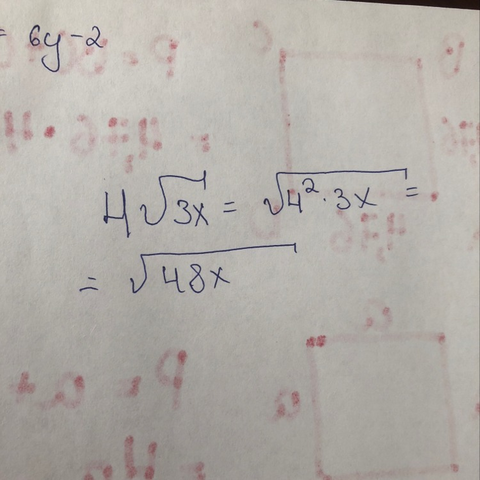 = 6y - 2
4√3x = √4²·3x =
= √48x